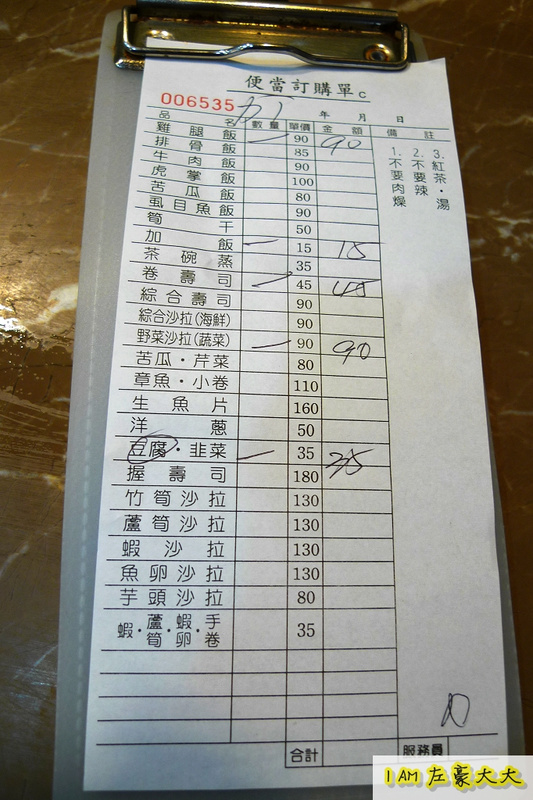 便當訂購單c
006535
年 月 日
品名 數量 單價 金額 備註
雞腿飯 一 90 90
排骨飯 85
牛肉飯 90
虎掌飯 100
苦瓜飯 80
虱目魚飯 90
筍干 50
加飯 一 15 15
茶碗蒸 35
卷壽司 一 45 45
綜合壽司 90
綜合沙拉(海鮮) 90
野菜沙拉(蔬菜) 一 90 90
苦瓜·芹菜 80
章魚·小卷 110
生魚片 160
洋蔥 50
豆腐·韭菜 一 35 35
握壽司 180
竹筍沙拉 130
蘆筍沙拉 130
蝦沙拉 130
魚卵沙拉 130
芋頭沙拉 80
蝦·蘆筍·蝦卵·手卷 35
合計 服務員
3.紅茶·湯
2.不要辣
1.不要肉燥
I AM 左豪大大